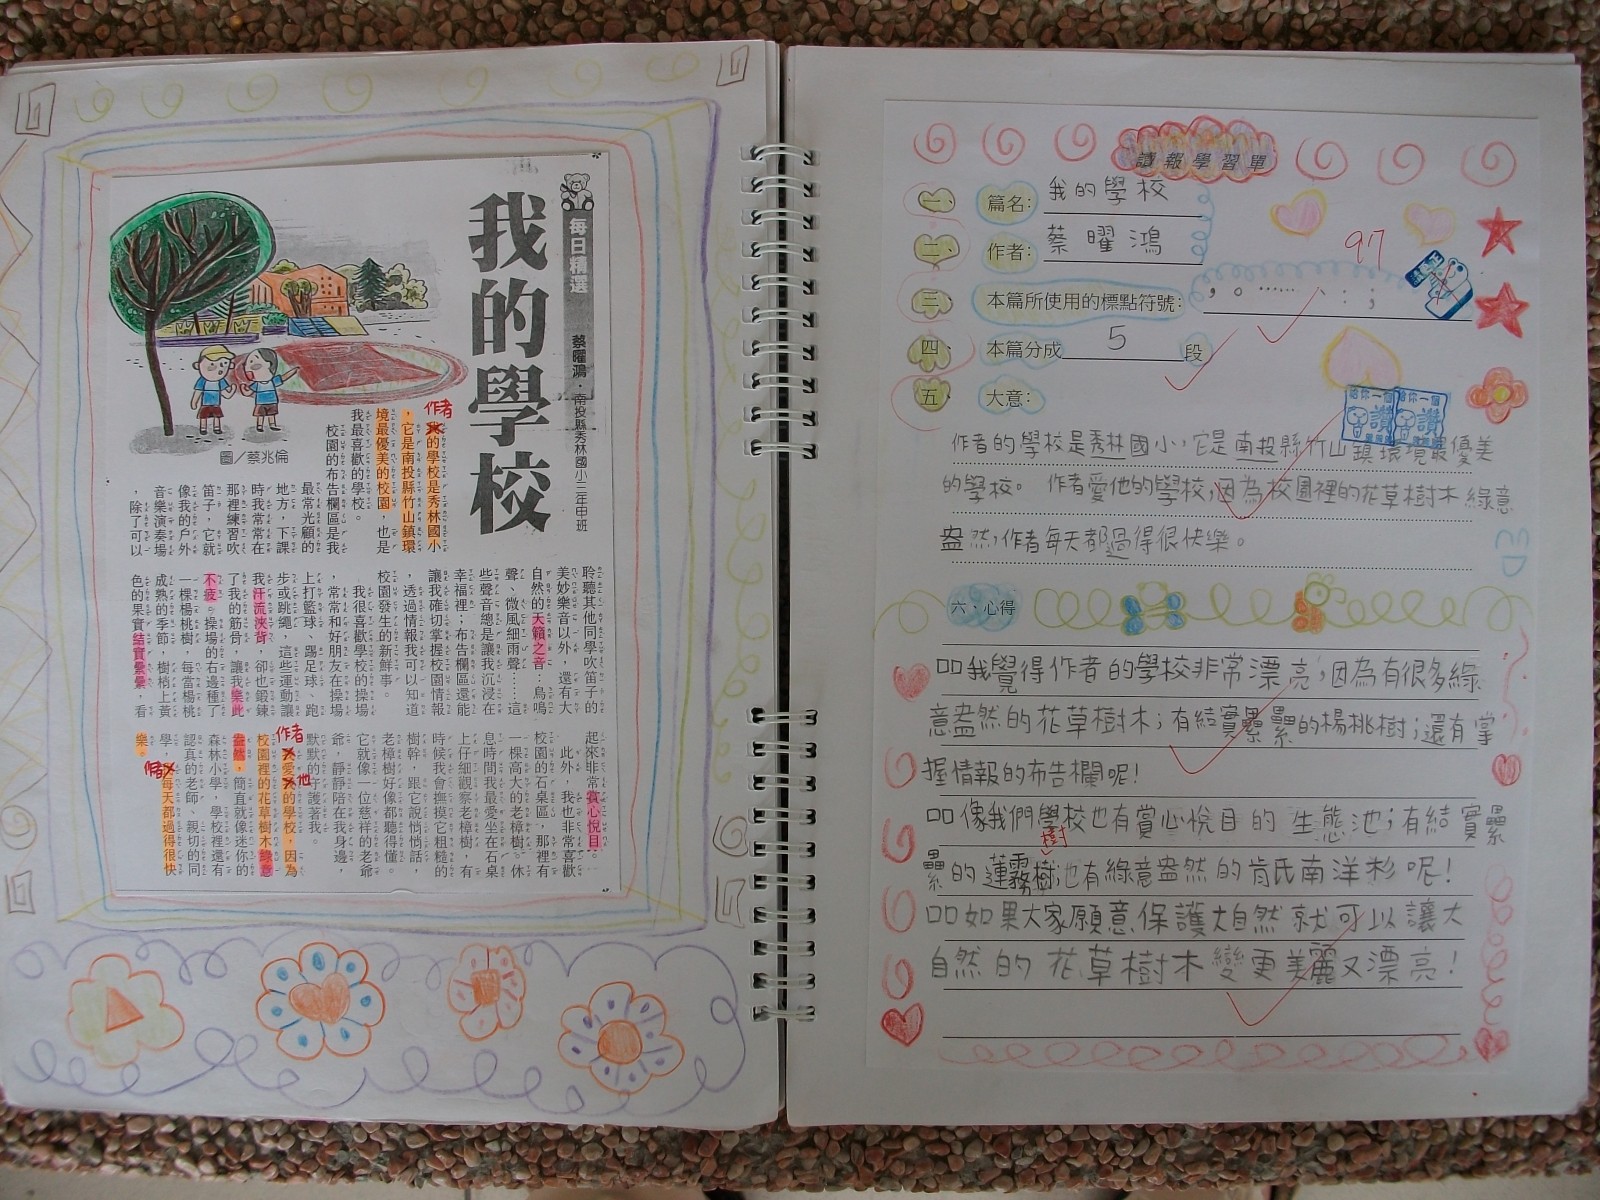 每日精選
蔡曜鴻．南投縣秀林國小三年甲班
我的學校
圖／蔡兆倫
作者
我的學校是秀林國小
，它是南投縣竹山鎮環
境最優美的校園，也是
我最喜歡的學校。
校園的布告欄區是我
最常光顧的
地方，下課
時我常常在
那裡練習吹
笛子，它就
像我的戶外
音樂演奏場
，除了可以
聆聽其他同學吹笛子的
美妙樂音以外，還有大
自然的天籟之音：鳥鳴
聲、微風細雨聲……這
些聲音總是讓我沉浸在
幸福裡；布告欄區還能
讓我確切掌握校園情報
，透過情報我可以知道
校園發生的新鮮事。
我很喜歡學校的操場
，常常和好朋友在操場
上打籃球、踢足球、跑
步或跳繩，這些運動讓
我汗流浹背，卻也鍛鍊
了我的筋骨，讓我樂此
不疲。操場的右邊種了
一棵楊桃樹，每當楊桃
成熟的季節，樹梢上黃
色的果實結實纍纍，看
起來非常賞心悅目。
此外，我也非常喜歡
校園的石桌區，那裡有
一棵高大的老樟樹。休
息時間我最愛坐在石桌
上仔細觀察老樟樹，有
時候我會撫摸它粗糙的
樹幹，跟它說悄悄話，
老樟樹好像都聽得懂。
它就像一位慈祥的老爺
爺，靜靜陪在我身邊，
默默的守護著我。
作者
他
愛的學校，因為
校園裡的花草樹木綠意
盎然，簡直就像迷你的
森林小學，學校裡還有
認真的老師、親切的同
學，每天都過得很快
樂。
讀報學習單
一、篇名：我的學校
二、作者：蔡曜鴻
97
三、本篇所使用的標點符號：，。……、：；
四、本篇分成5段
五、大意：
給你一個讚
給你一個讚
作者的學校是秀林國小，它是南投縣竹山鎮環境最優美
的學校。作者愛他的學校，因為校園裡的花草樹木綠意
盎然，作者每天都過得很快樂。
六、心得
口口我覺得作者的學校非常漂亮，因為有很多綠
意盎然的花草樹木；有結實纍纍的楊桃樹；還有掌
握情報的布告欄呢！
口口像我們學校也有賞心悅目的生態池；有結實纍
樹
纍的蓮霧樹；也有綠意盎然的肯氏南洋杉呢！
口口如果大家願意保護大自然就可以讓大
自然的花草樹木變更美麗又漂亮！